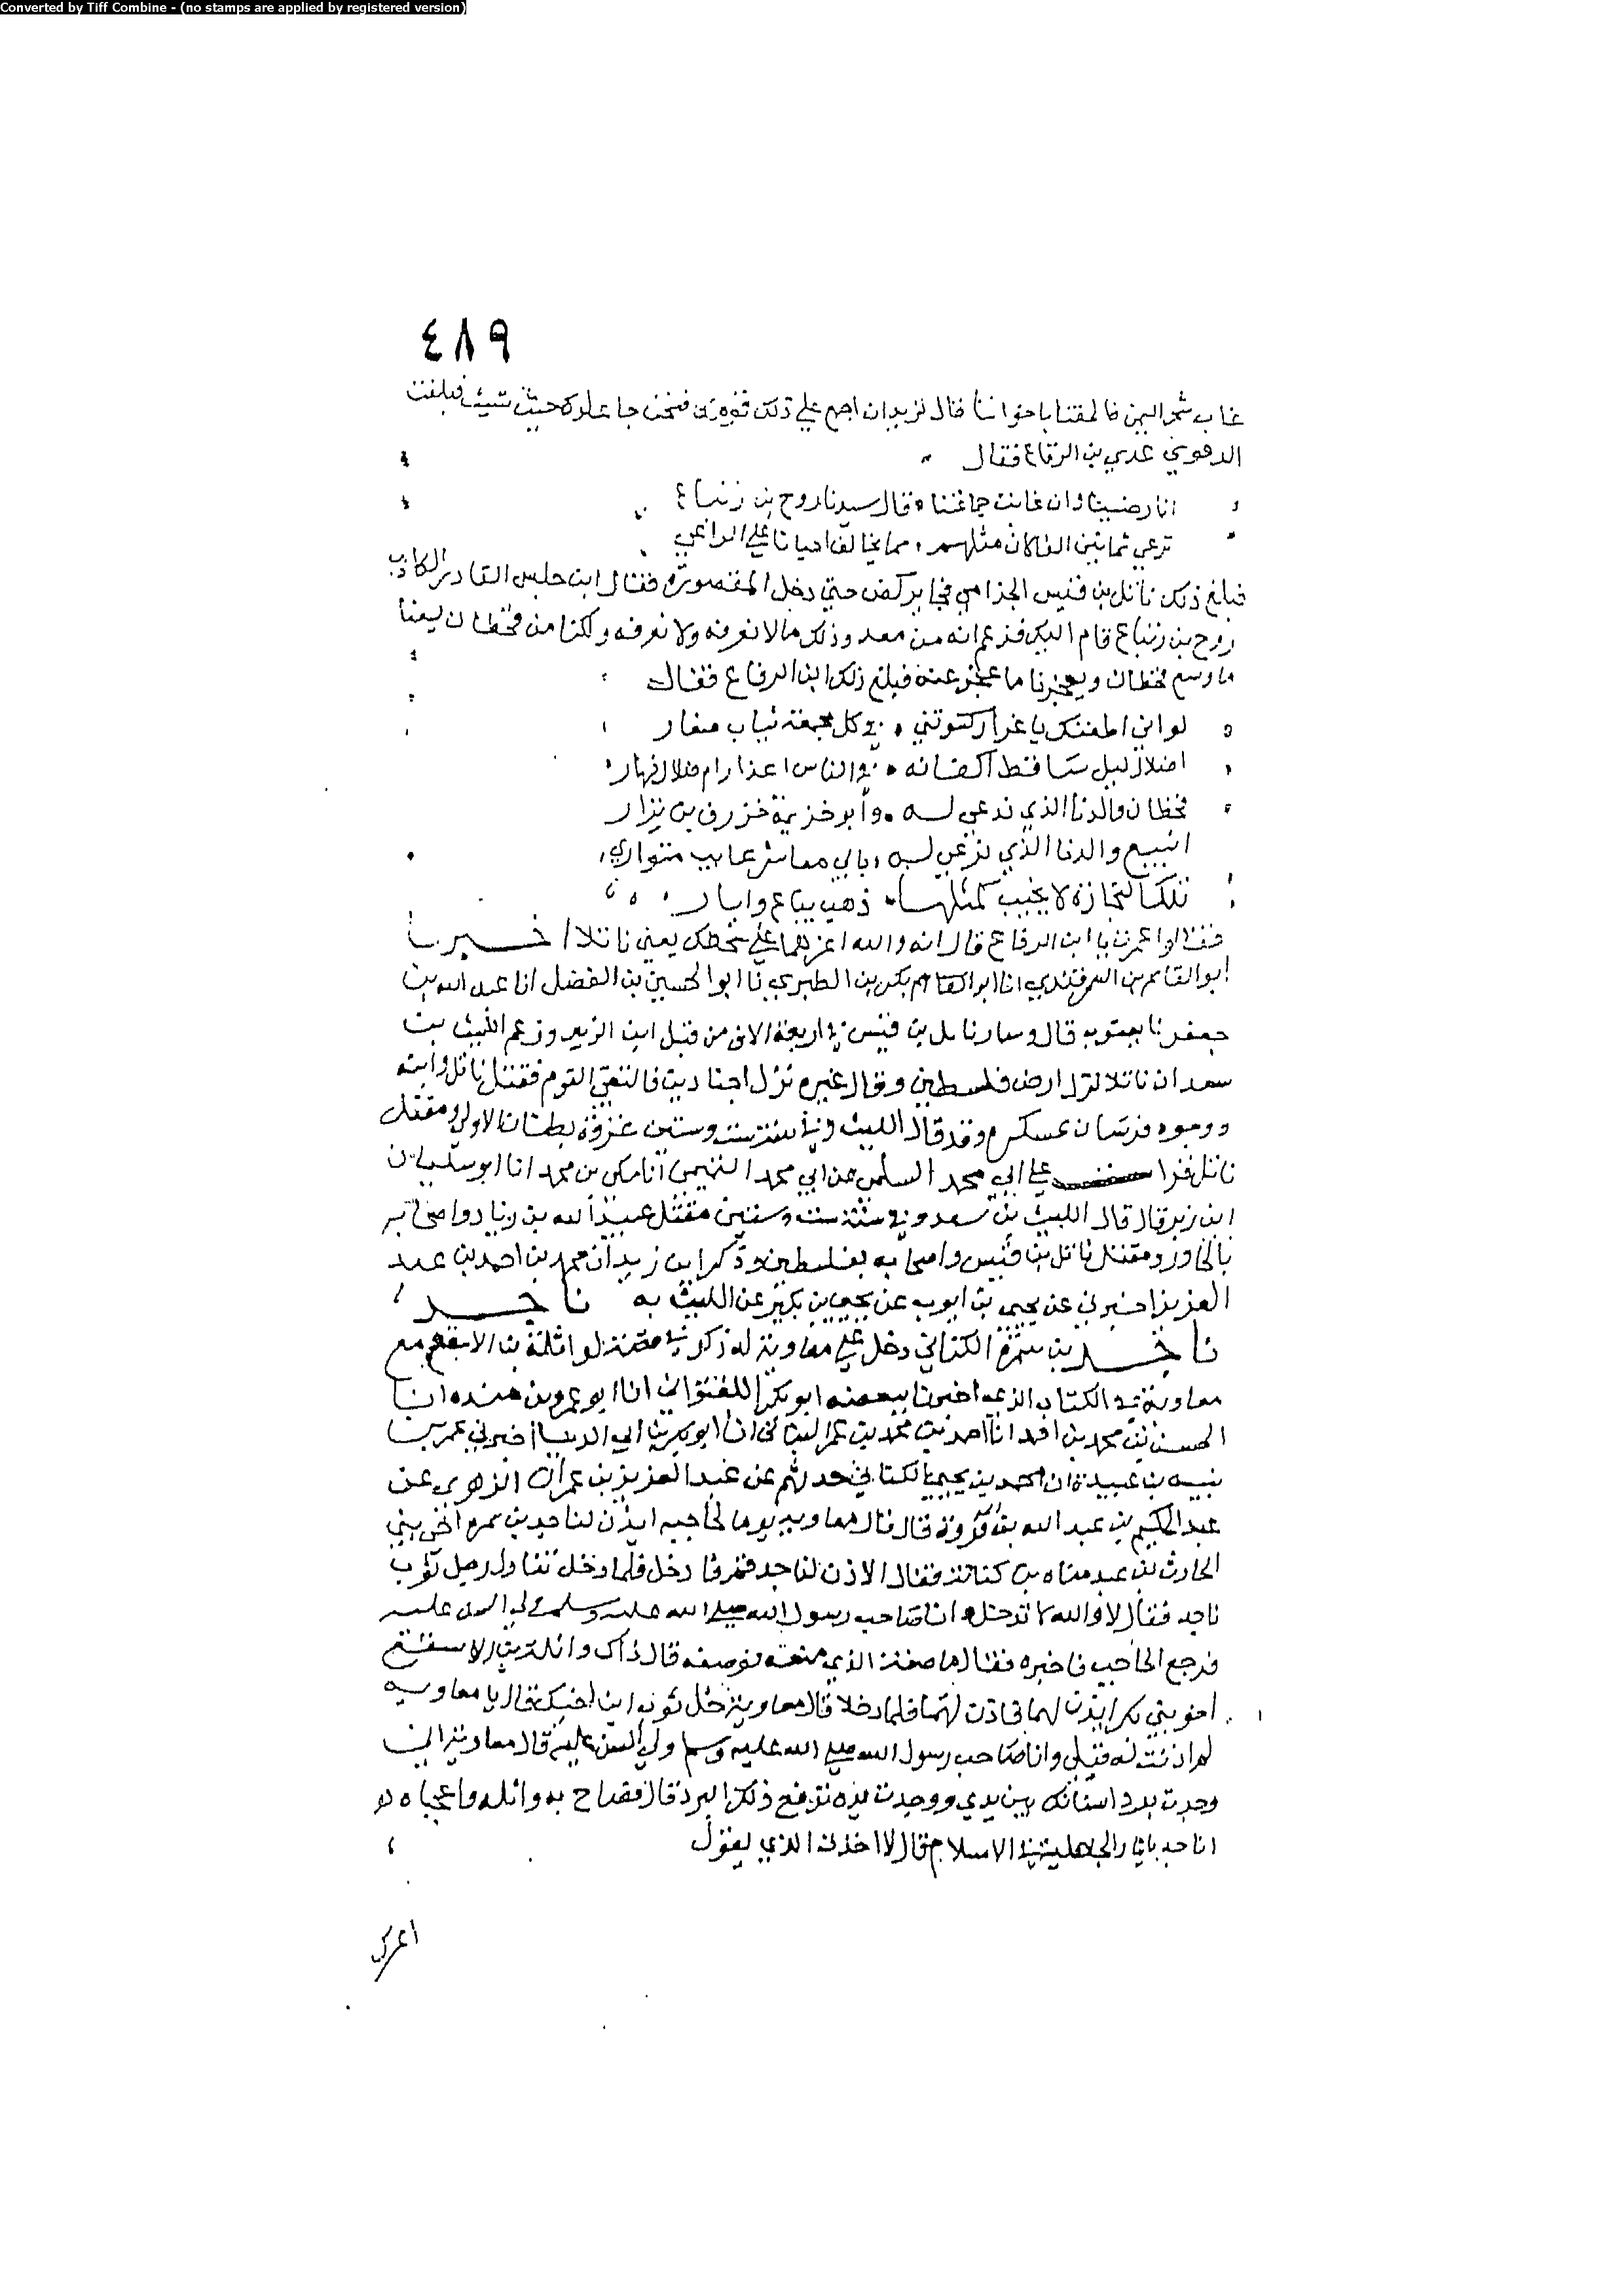 Converted by Tiff Combine - (no stamps are applied by registered version)
٤٨٩
غاب شحر اليمن فالحقنا باخواننا فقال لزيد ان اجمع علي ذلك قومك فنحن جاعلوك حيث شيت فبلغت
الدعوي عدي بن الرقاع فقال
انا رضينا وان غابت جماعتنا ه قال سيدنا روح بن زنباع
ترعي ثمانين الفا كان مثلهم ، مما يخالف احيانا علي الراعي
فبلغ ذلك ناتل بن قيس الجذامي فجا يركض حتي دخل المقصورة فقال اين جلس الغادر الكاذب
روح بن زنباع قام اليك فزعم انه من معد وذلك مالا نعرفه ولا نعرفه ولكنا من قحطان يسعنا
ما وسع قحطان ويعجزنا ما عجز عنه فبلغ ذلك ابن الرقاع فقال
لو اني اطعتك يا غرار كسوتني ه في كل مجمعة ثياب صغار
اضلال ليل ساقط اكفانه ه في الناس اعذر ام ضلال نهار
قحطان والدنا الذي ندعي له ه وأبو خزيمة خزرف بن نزار
انبيع والدنا الذي ندعي له ، بابي معاشر عايب متواري
تلك التجارة لا نجيب لمثلها ه ذهب يباع وابار
فقالوا غيرت يا ابن الرقاع قال انه والله اعزهما علي سخطك يعني ناتلا اخبرنا
ابو القاسم بن السمرقندي انا ابو القاسم بكر بن الطبري نا ابو الحسين بن الفضل انا عبد الله بن
جعفر نا يعقوب قال وسار ناتل بن قيس في اربعة الاف من قبل ابن الزبير وزعم الليث بن
سعد ان ناتلا نزل ارض فلسطين وقال غيره نزل اجنادين فالتقي القوم فقتل ناتل وابنه
ووجوه فرسان عسكره وقد قال الليث وفي سنة ست وستين غزوة بطنان الاولي ومقتل
ناتل قرا علي ابي محمد السلمي عن ابي محمد التميمي انا مكي بن محمد انا ابو سليمان
ابن زبر قال قال الليث بن سعد وفي سنة ست وستين مقتل عبيد الله بن زياد واصحابه
بالخاوزر ومقتل ناتل بن قيس واصحابه بفلسطين وذكر ابن زبر ان محمد بن احمد بن عبد
العزيز اخبرني عن يحيي بن ايوب عن يحيي بن بكير عن الليث به ناجد
ناجد بن سمرة الكناني دخل علي معاوية له ذكر في قصة لواثلة بن الاسقع مع
معاوية في الكتاب الذي اخبرنا ببعضه ابو بكر اللفتواني انا ابو عمرو بن منده انا
الحسن بن محمد بن احمد انا احمد بن محمد بن عمر اللبناني انا ابو بكر بن ابي الدنيا اخبرني عمر بن
نبيه بن عبيدة ان محمد بن يحيي الكناني حدثهم عن عبد العزيز بن عمران الزهري عن
عبد الحكيم بن عبد الله بن فروة قال قال معاوية يوما لحاجبه ايذن لناجد بن سمرة اخي بني
الحارث بن عبد مناه بن كنانة فقال الاذن لناجد فلما دخل تناول رجل ثوب
ناجد فقال لا والله لا تدخل وانا صاحب رسول الله صلي الله عليه وسلم ولي السن عليه
فرجع الحاجب فاخبره فقال ما صفة الذي منعه فوصفه قال ذاك واثلة بن الاسقع
اخو بني بكر ايذن لهما فاذن لهما فلما دخلا قال معاوية خل ثوب ابن اخيك قال يا معاويه
لم اذنت له قبلي وانا صاحب رسول الله صلي الله عليه وسلم ولي السن عليه قال معاوية اني
وجدت برد اسنانك بين يدي ووجدت يده ترفع ذلك البرد قال فصاح به واثله واعجباه
اناحد باثار الجاهلية في الاسلام قال لا اخذت الذي يقول
اعرك